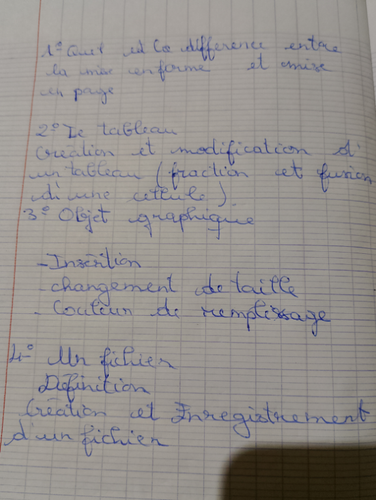 1° Quel est la différence entre
la mise enforme et mise
en page
2° Le tableau
Création et modification d'
un tableau (fraction et fusion
d'une cellule)
3° Objet graphique
- Insértion
- changement de taille
- Couleur de remplissage
4° Un fichier
Définition
Création et Enregistrement
d'un fichier